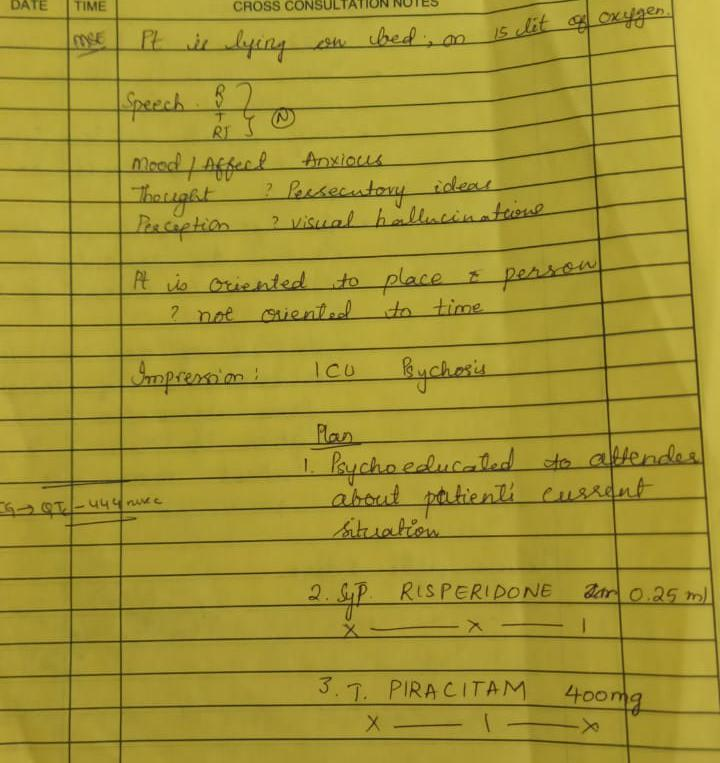 DATE TIME CROSS CONSULTATION NOTES
MSE Pt is lying on bed, on 15 lit of oxygen.
Speech. R
T
RT } (N)
Mood / Affect Anxious
Thought ? Persecutory ideas
Perception ? visual hallucinations
Pt is oriented to place & person
? not oriented to time
Impression: ICU Psychosis
Plan
1. Psychoeducated to attender
about patient's current
situation
CG → QTc - 444 msec
2. Syp. RISPERIDONE 0.25 ml
x — x — 1
3. T. PIRACITAM 400mg
x — 1 — x